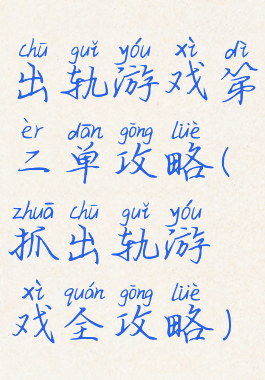 chū guǐ yóu xì dì
出轨游戏第
èr dān gōng lüè
二单攻略(
zhuā chū guǐ yóu
抓出轨游
xì quán gōng lüè
戏全攻略)